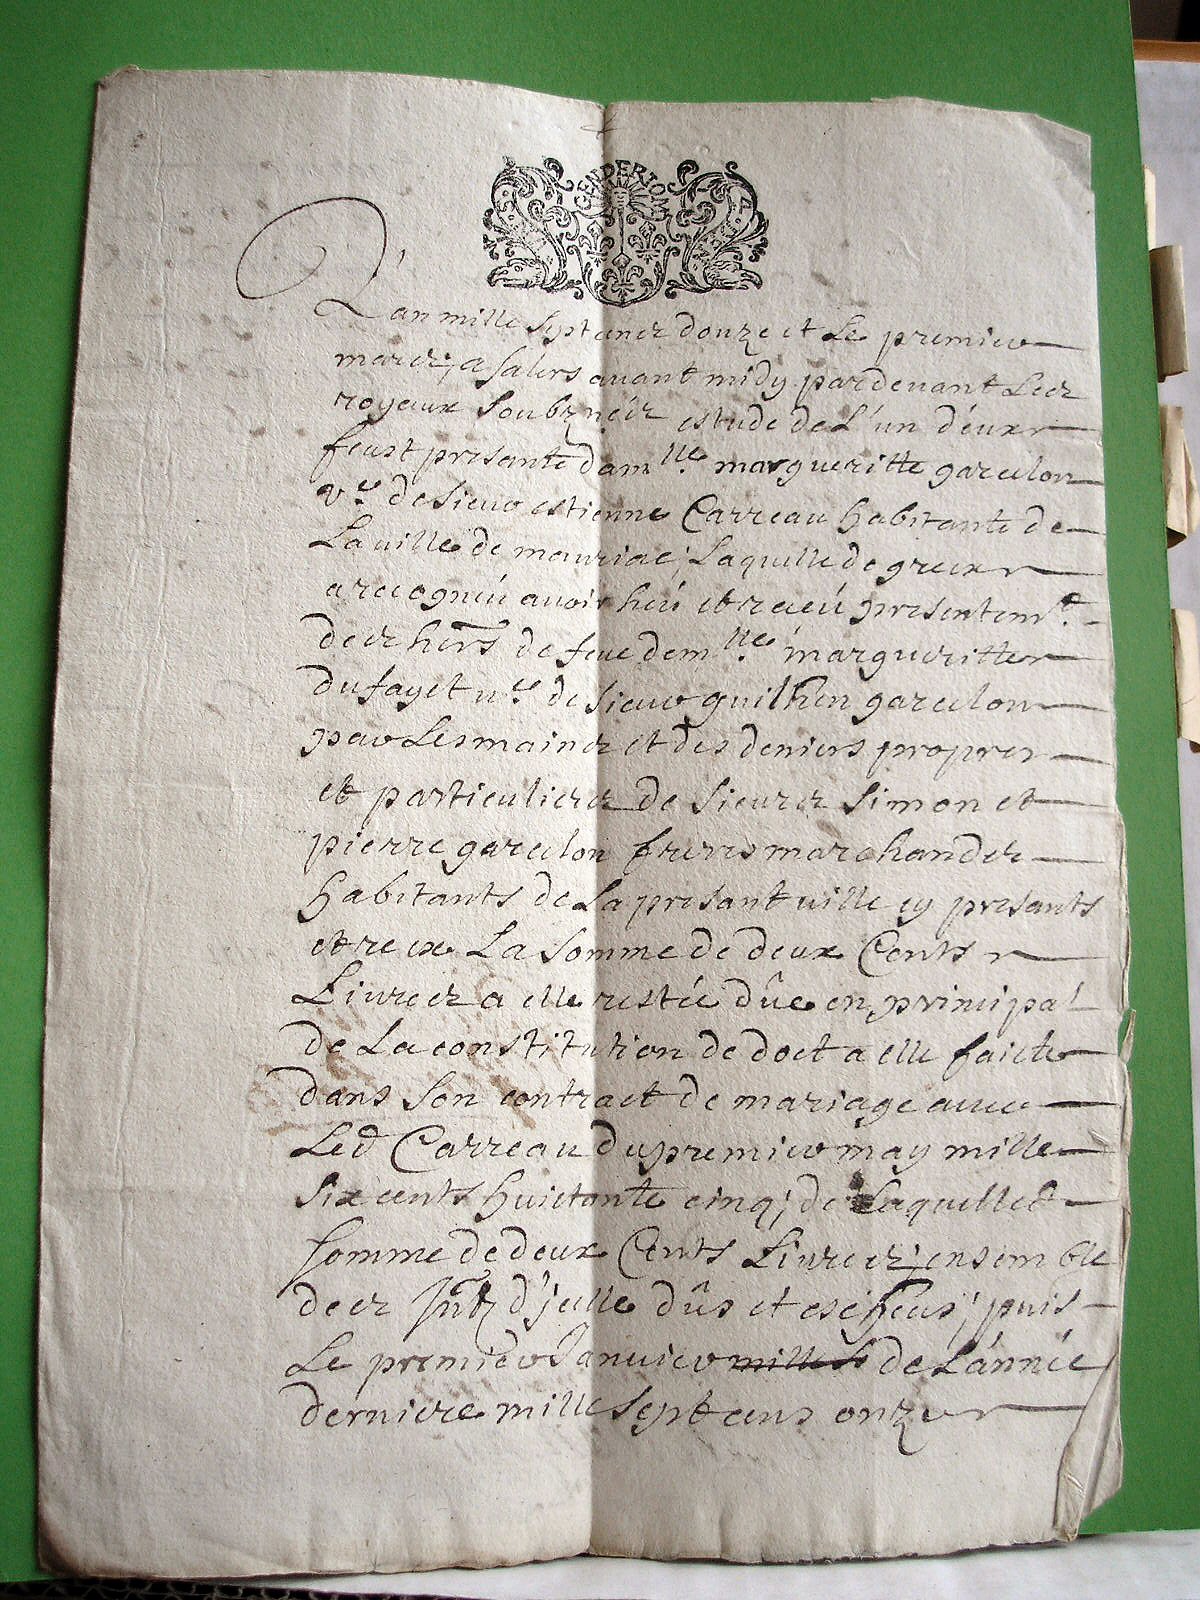 GEN DE RIOM
L'an mille sept cens douze et Le premier
marcz, a salers auant midy pardeuant Les
royaux soubznés estude de L'un d'eux
feust presante dam^lle margueritte garcelon
v^e de sieur estienne Carreau habitante de
La uille de mauriac, Laquelle de grex
a recogneü auoir heü et receü presentem^t.
des hers de feue dem^lle margueritte
dufayet v^e de sieur guilhen garcelon
par Les mains et des deniers propres
et particuliers de sieurs simon et
pierre garcelon freres marchandz
habitants de La presant uille cy presants
et re La somme de deux Cents
Liures a elle restée dûe en principal
de La constitution de doct a elle faicte
dans son contract de mariage auec
Led Carreau du premier may mille
six cents huictante cinq, de Laquelled
somme de deux Cents Liures, ensemble
des Intz d'jcelle dûs et escheus, puis
Le premier Januier mille s de L'année
derniere mille sept cens onze